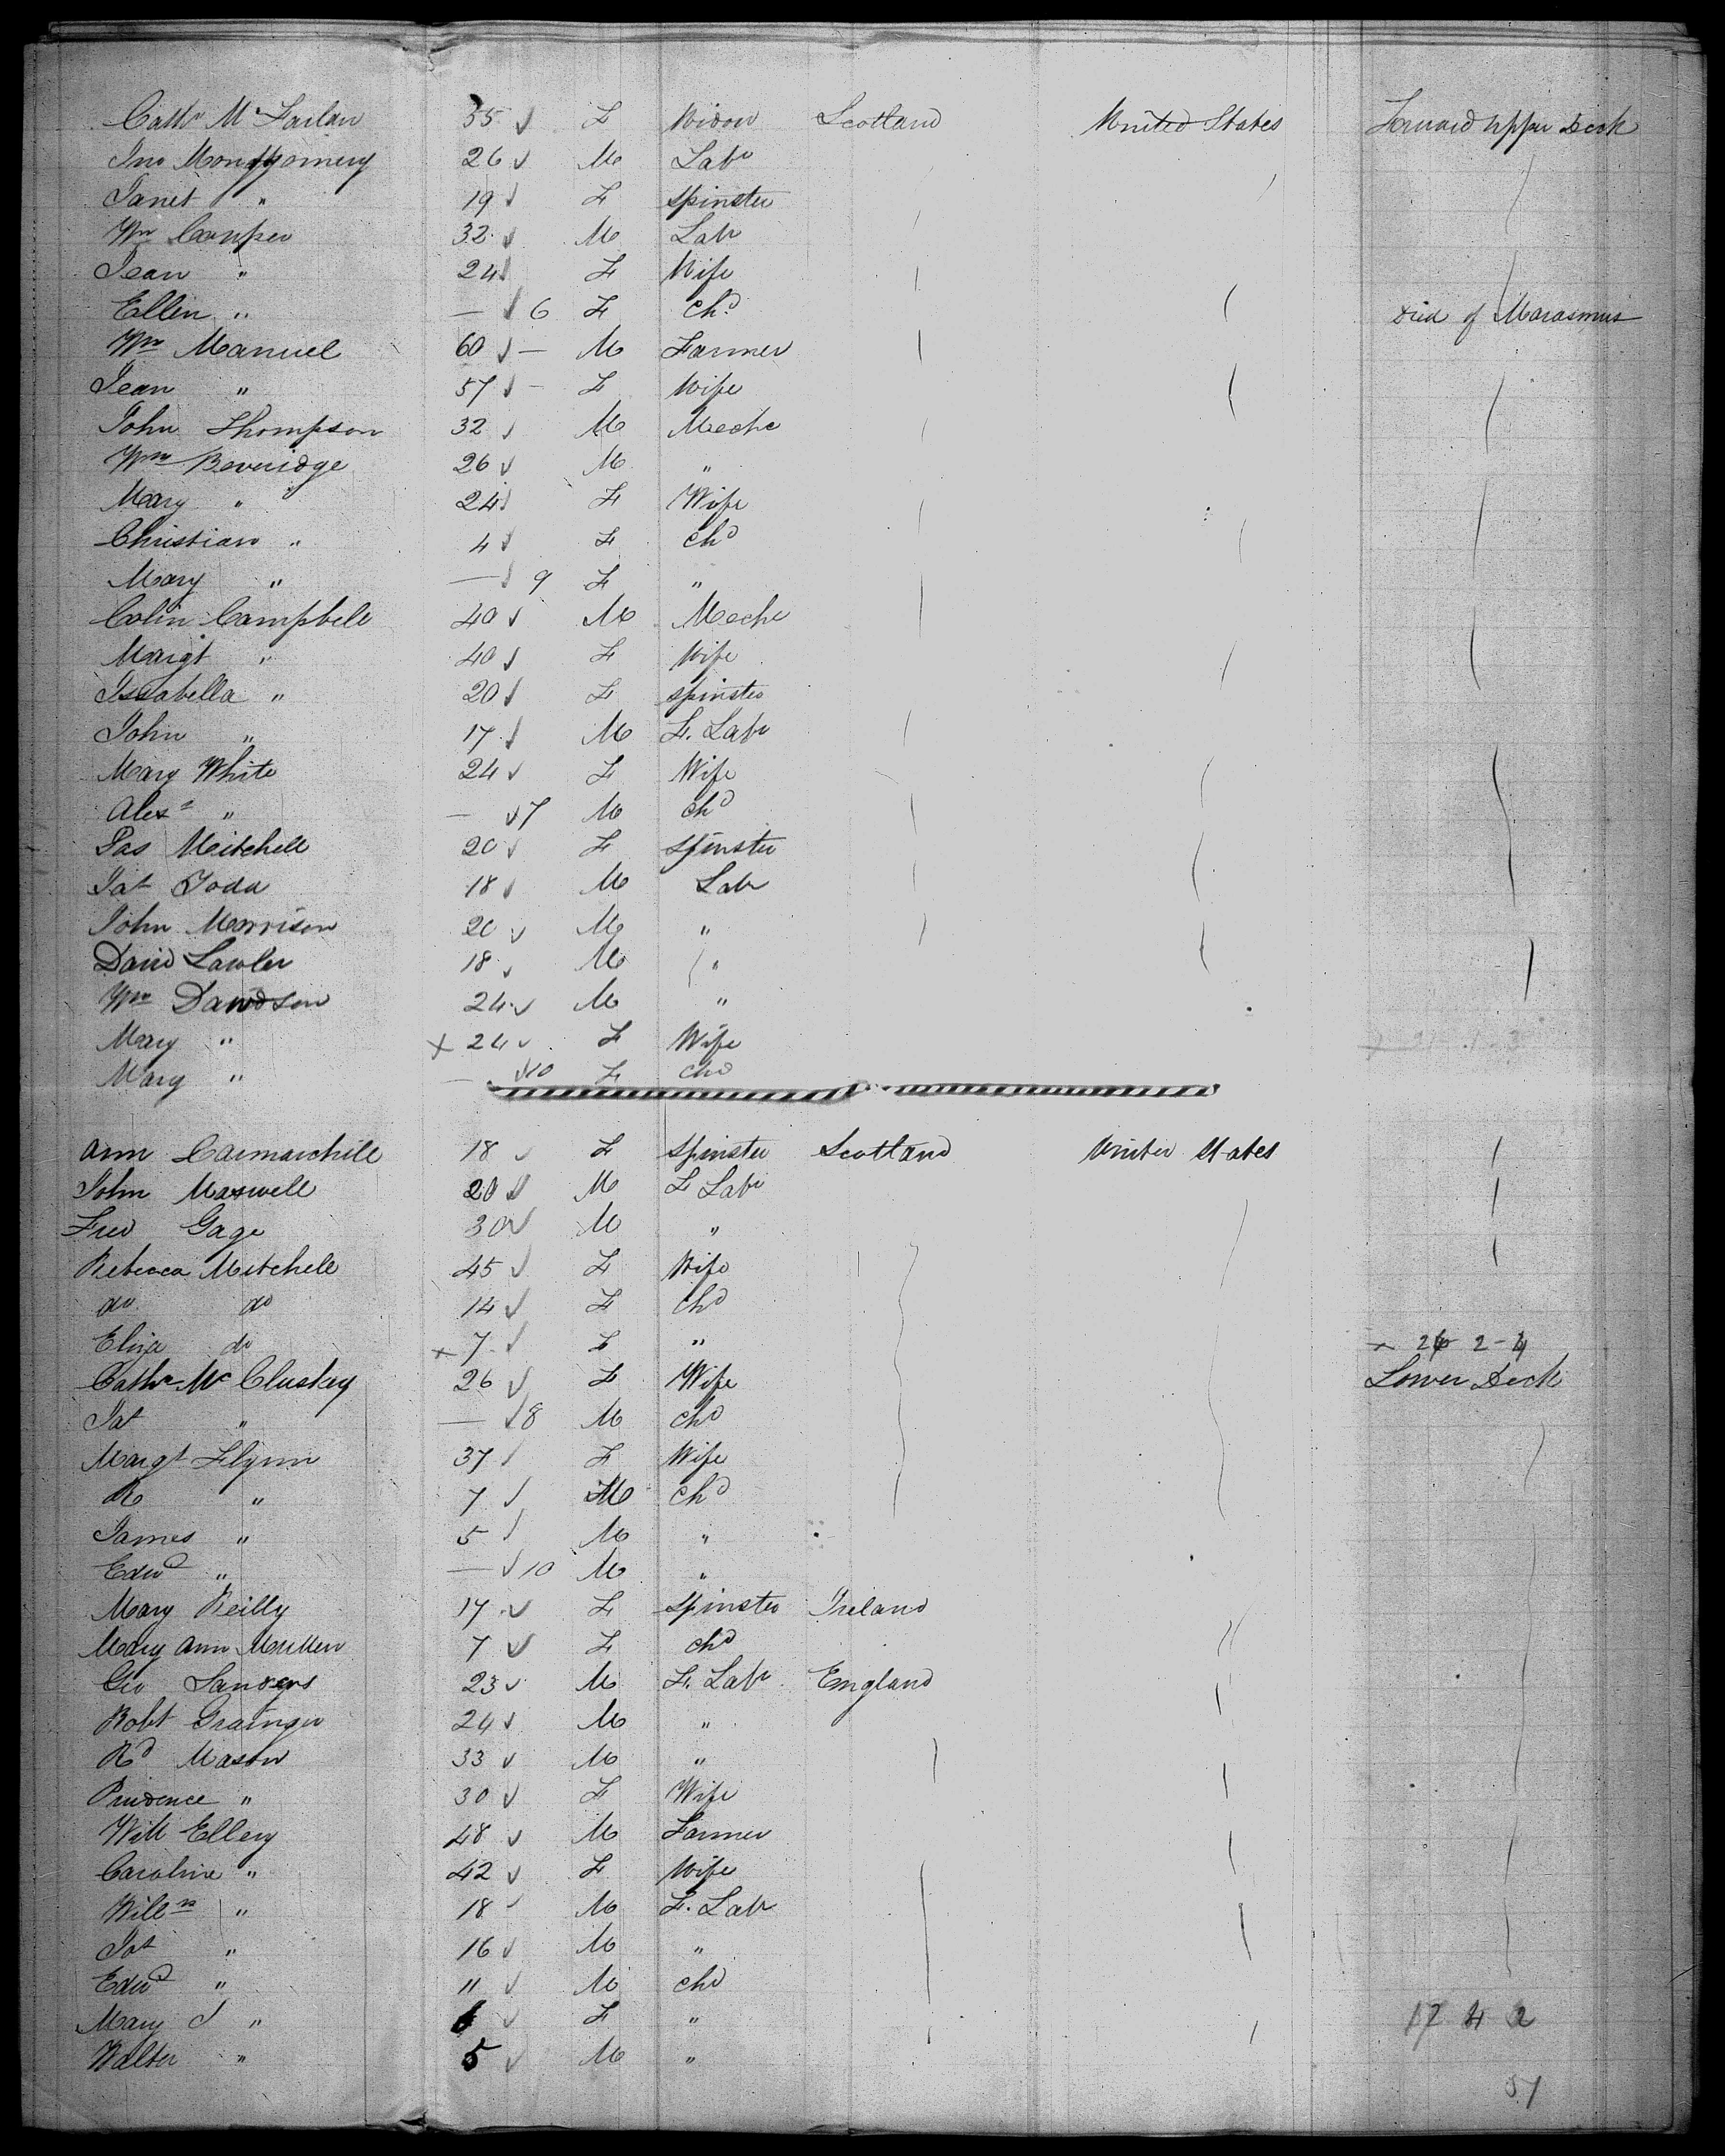 Cathn Mc Farlan 55 F Widow Scotland United States Forward upper Deck
Jno Montgomery 26 M Labr
Janet " 19 F spinster
Wm Couper 32 M Labr
Jean " 24 F Wife
Ellen " — 6 F Chd Died of Marasmus
Wm Manuel 60 — M Farmer
Jean " 57 — F Wife
John Thompson 32 M Mechc
Wm Beveridge 26 M "
Mary " 24 F Wife
Christian " 4 F Chd
Mary " — 9 F "
Colin Campbell 40 M Mechc
Margt " 40 F Wife
Issabella " 20 F spinster
John " 17 M F. Labr
Mary White 24 F Wife
Alexr " — 7 M Chd
Jas Mitchell 20 F spinster
Pat Todd 18 M Labr
John Morrison 20 M "
David Lawler 18 M "
Wm Davidson 24 M "
Mary " x 24 F Wife
Mary " — 10 F Chd
Ann Carmarchill 18 F Spinster Scotland United States
John Maxwell 20 M F Labr
Fred Gage 30 M "
Rebecca Mitchell 45 F Wife
do do 14 F Chd
Eliza do x 7 F " x 26 2-4
Cathn Mc Cluskey 26 F Wife Lower Deck
Pat " — 8 M Chd
Margt Flynn 37 F Wife
R " 7 M Chd
James " 5 M "
Edwd " — 10 M "
Mary Reilly 17 F Spinster Ireland
Mary Ann Mullen 7 F Chd
Geo Sanders 23 M F. Labr England
Robt Grainger 24 M "
Rd Mason 33 M "
Prudence " 30 F Wife
Will Ellery 48 M Farmer
Caroline " 42 F Wife
Willm " 18 M F. Labr
Pat " 16 M "
Edwd " 11 M Chd
Mary J " 6 F " 17 4 2
Walter " 5 M "
51